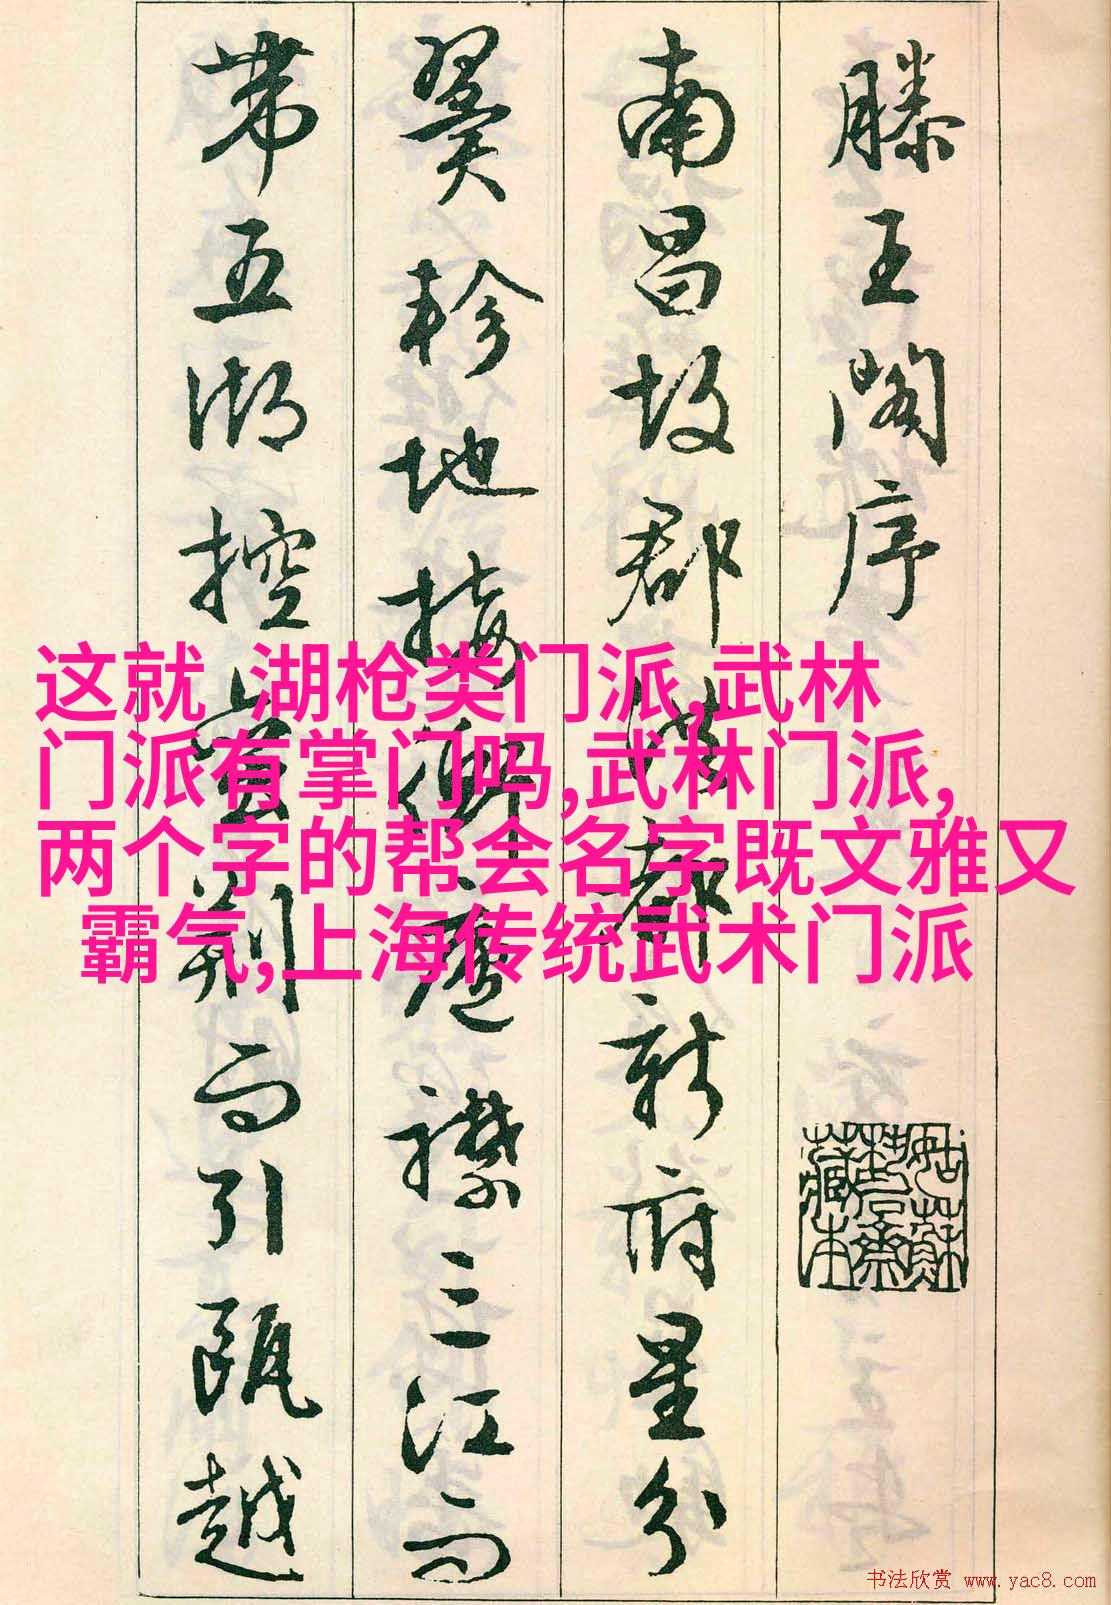 滕王閣序
南昌故郡洪都新府星分
翼軫地接衡廬襟三江而
帶五湖控蠻荆而引甌越
这就 湖枪类门派,武林
门派有掌门吗,武林门派,
两个字的帮会名字既文雅又
霸气,上海传统武术门派
书法欣赏 www.yac8.com